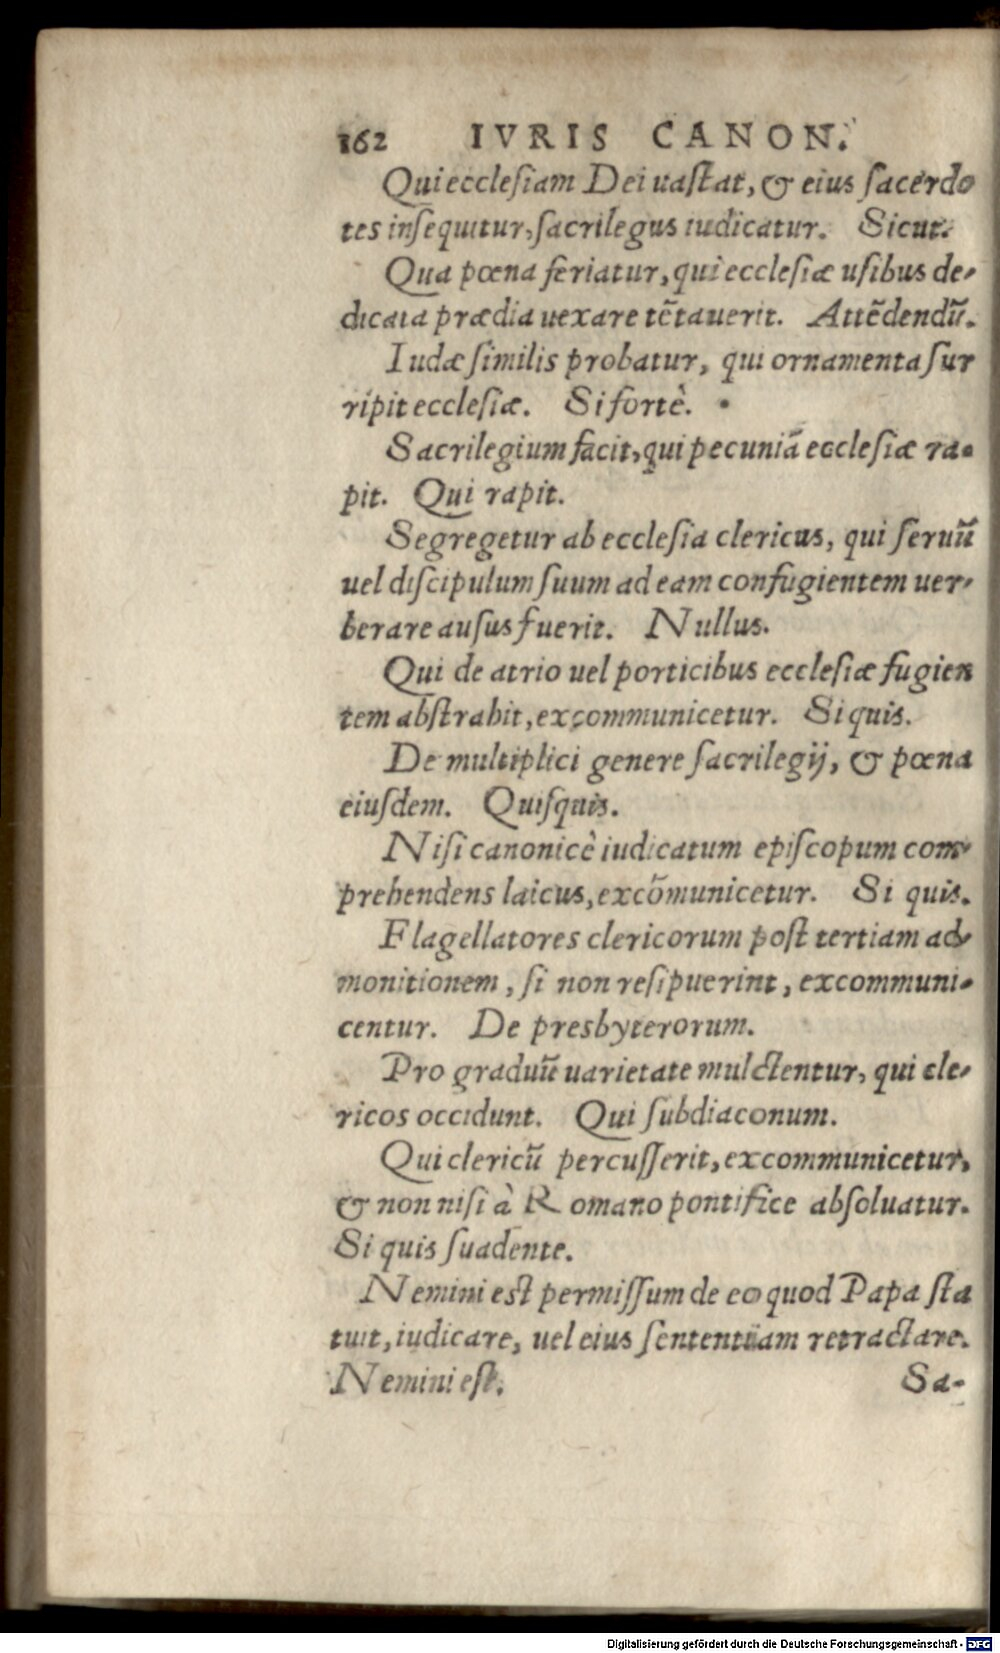 162 IVRIS CANON.
Qui ecclesiam Dei uastat, & eius sacerdo
tes insequitur, sacrilegus iudicatur. Sicut.
Qua pœna feriatur, qui ecclesiæ usibus de-
dicata prædia uexare tẽtauerit. Attẽdendũ.
Iudæ similis probatur, qui ornamenta sur
ripit ecclesiæ. Si fortè.
Sacrilegium facit, qui pecuniã ecclesiæ ra-
pit. Qui rapit.
Segregetur ab ecclesia clericus, qui seruũ
uel discipulum suum ad eam confugientem uer-
berare ausus fuerit. Nullus.
Qui de atrio uel porticibus ecclesiæ fugien
tem abstrahit, excommunicetur. Si quis.
De multiplici genere sacrilegij, & pœna
eiusdem. Quisquis.
Nisi canonicè iudicatum episcopum com-
prehendens laicus, excõmunicetur. Si quis.
Flagellatores clericorum post tertiam ad-
monitionem, si non resipuerint, excommuni-
centur. De presbyterorum.
Pro graduũ uarietate mulctentur, qui cle-
ricos occidunt. Qui subdiaconum.
Qui clericũ percusserit, excommunicetur,
& non nisi à Romano pontifice absoluatur.
Si quis suadente.
Nemini est permissum de eo quod Papa sta
tuit, iudicare, uel eius sententiam retractare.
Nemini est. Sa-
Digitalisierung gefördert durch die Deutsche Forschungsgemeinschaft - DFG